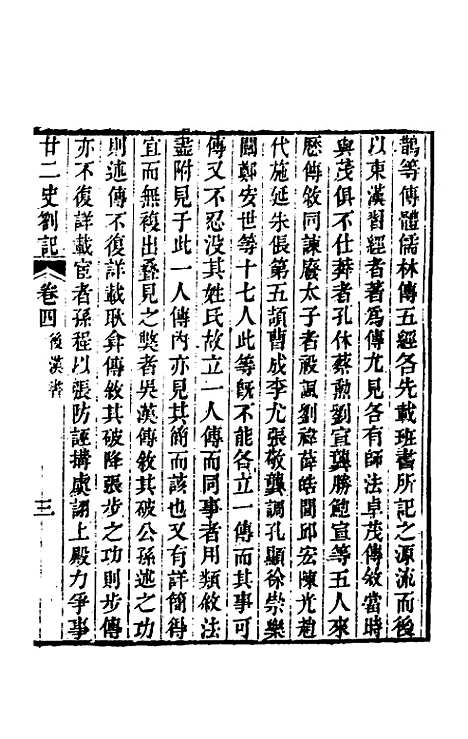 鵲等傳體儒林傳五經各先載班書所記之源流而後
以東漢習經者著爲傳尤見各有師法卓茂傳敘當時
與茂俱不仕莽者孔休蔡勲劉宣龔勝鮑宣等五人來
歷傳敘同諫廢太子者祋諷劉禕薛皓閭邱宏陳光趙
代施延朱倀第五頡曹成李尤張敬龔調孔顯徐崇樂
闈鄭安世等十七人此等旣不能各立一傳而其事可
傳又不忍沒其姓氏故立一人傳而同事者用類敘法
盡附見于此一人傳內亦見其簡而該也又有詳簡得
宜而無複出疊見之獘者吳漢傳敘其破公孫述之功
則述傳不復詳載耿弇傳敘其破降張步之功則步傳
亦不復詳載宦者孫程以張防誣搆虞詡上殿力爭事
廿二史劄記 卷四 後漢書 三